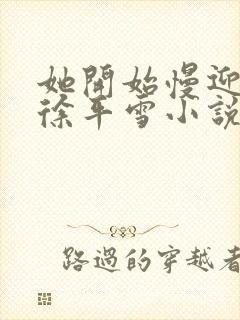 她開始慢迎
徐平雪小說
路過的穿越者